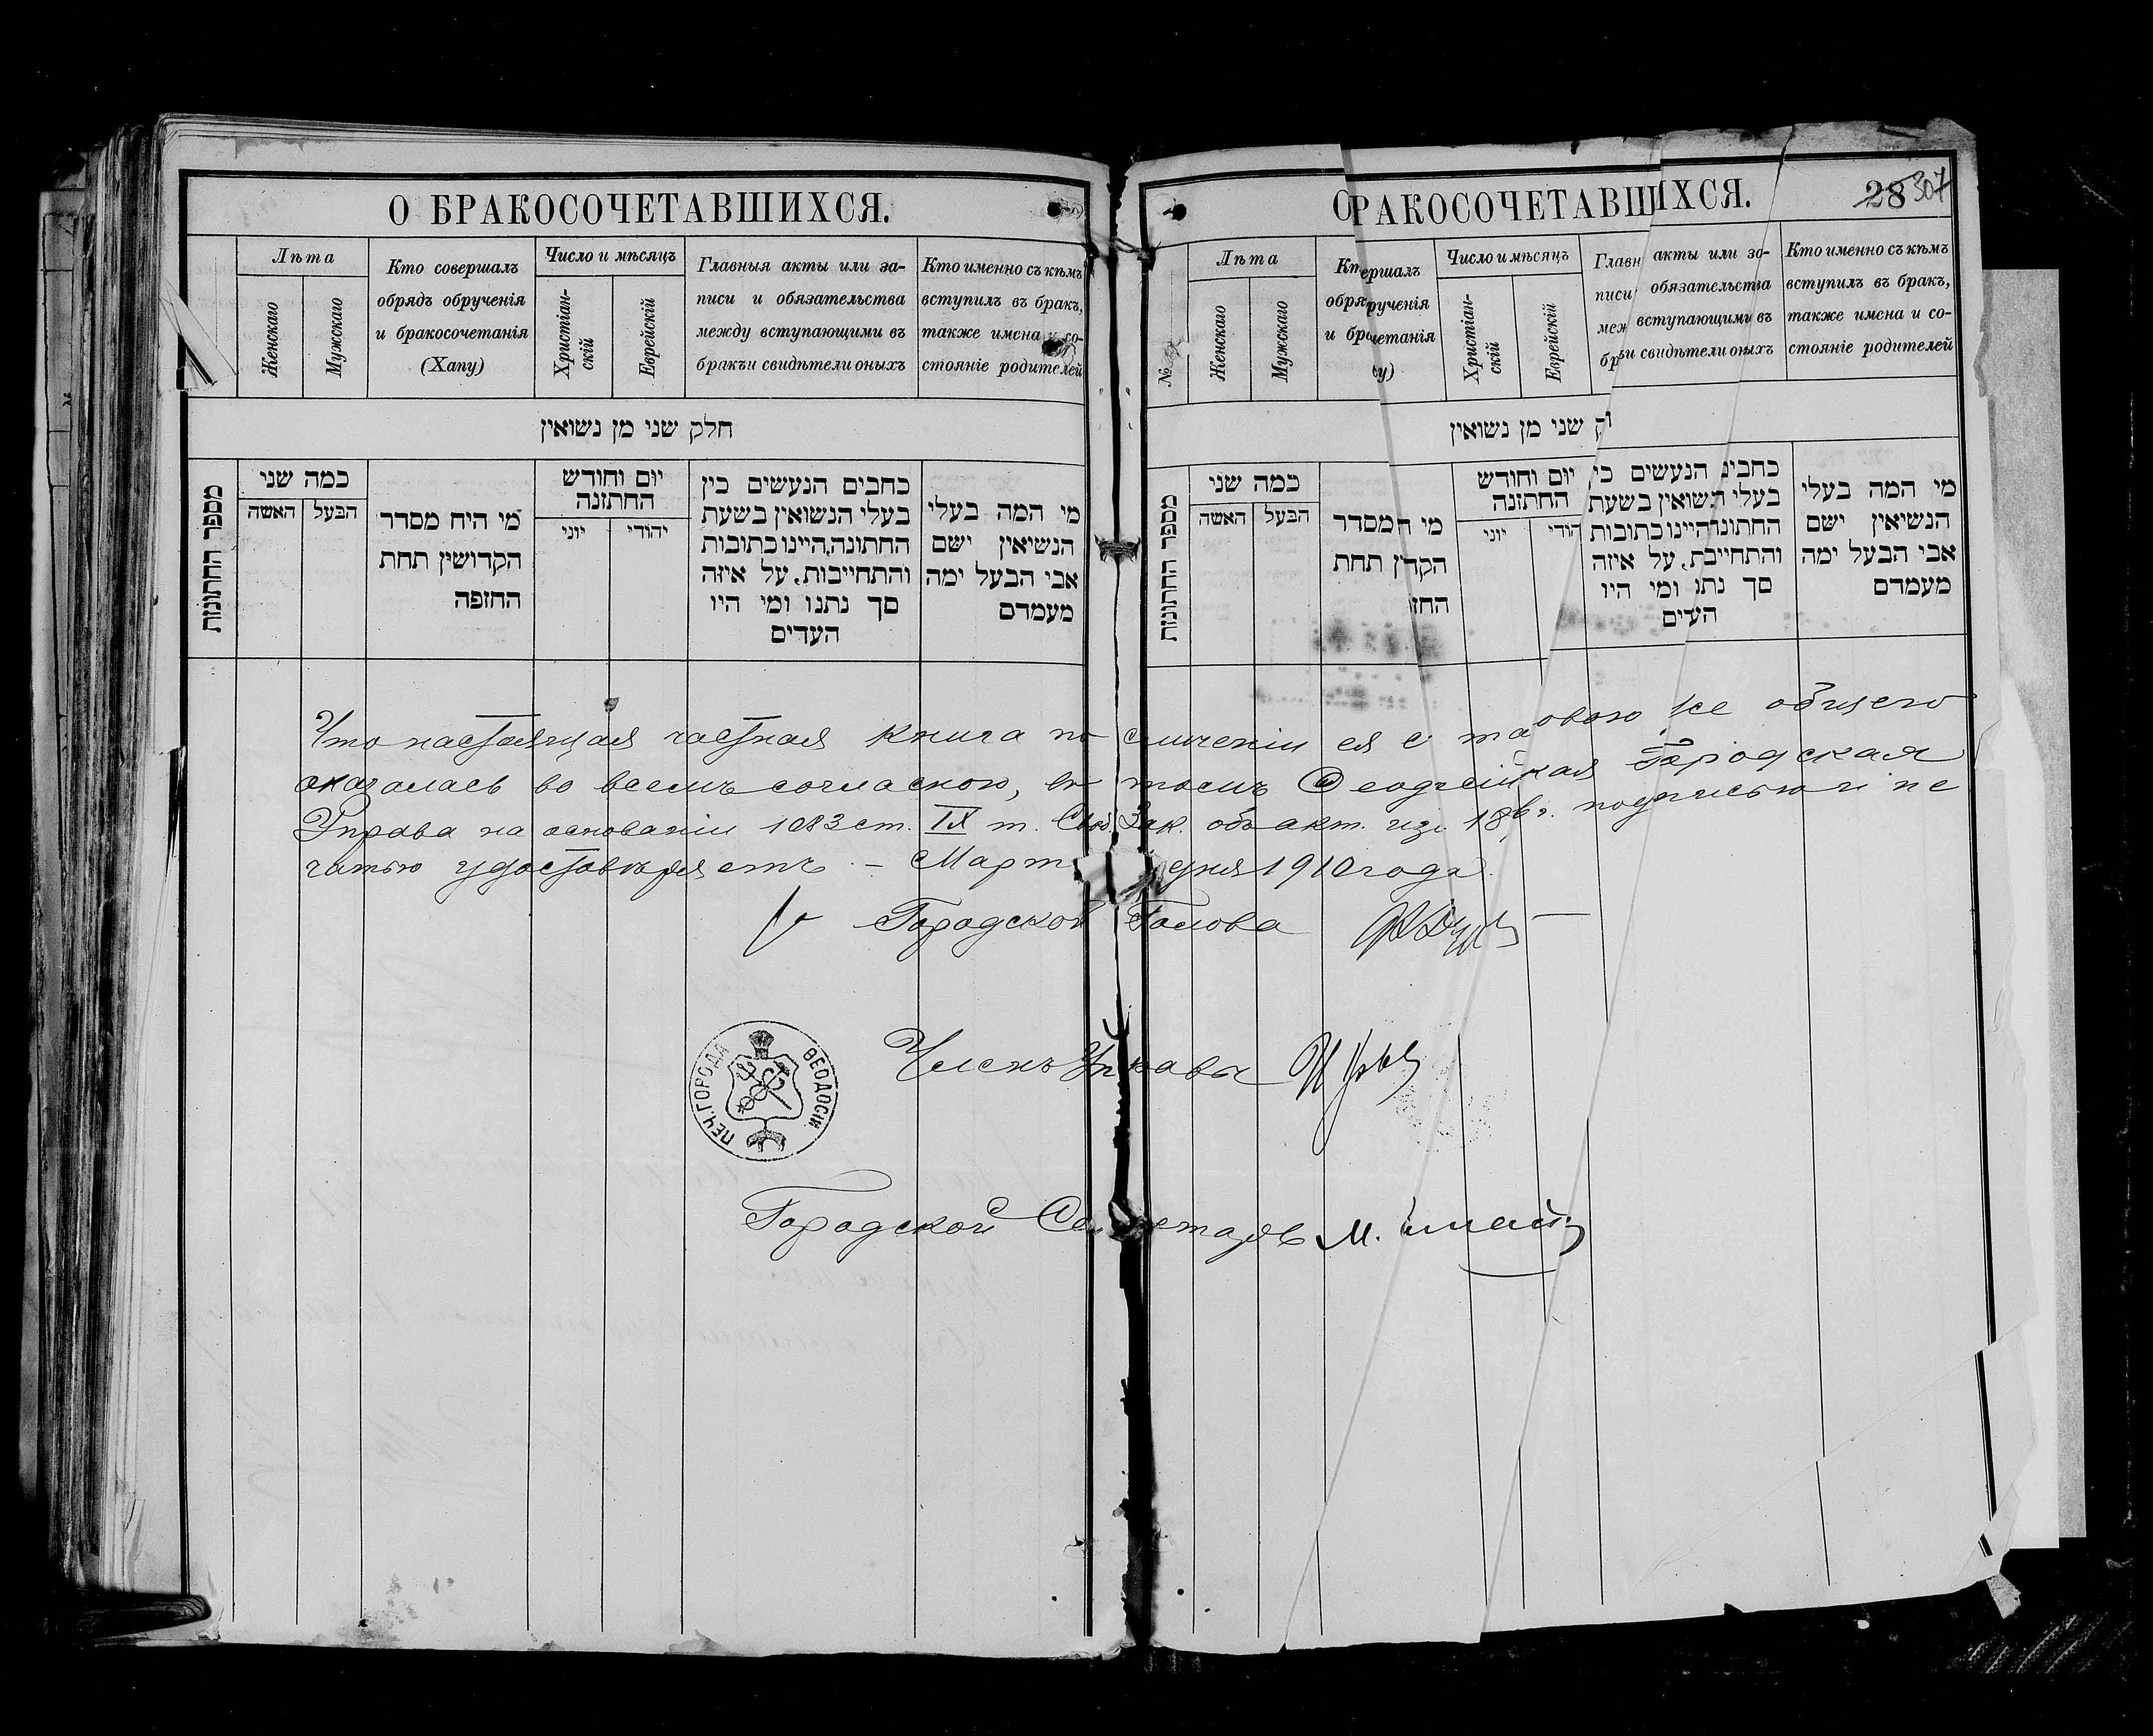 О БРАКОСОЧЕТАВШИХСЯ.
Лѣта
Женскаго
Мужскаго
Кто совершалъ
обрядъ обрученія
и бракосочетанія
(Хапу)
Число и мѣсяцъ
Христіан-
скій
Еврейскій
Главныя акты или за-
писи и обязательства
между вступающими въ
бракъ и свидѣтели оныхъ
Кто именно съ кѣмъ
вступилъ въ бракъ,
также имена и со-
стояніе родителей
חלק שני מן נשואין
מספר החתונות
כמה שני
האשה
הבעל
מי היח מסדר
הקדושין תחת
החופה
יום וחודש
החתונה
יוני
יהודי
כתבים הנעשים בין
בעלי הנשואין בשעת
החתונה, היינו כתובות
והתחייבות, על איזה
סך נתנו ומי היו
העדים
מי המה בעלי
הנשיאין ישם
אבי הבעל ימה
מעמדם
РАКОСОЧЕТАВШИХСЯ.
28 307
№
Лѣта
Женскаго
Мужскаго
Кт ершалъ
обря рученія
и бр четанія
у)
Число и мѣсяцъ
Христіан-
скій
Еврейскій
Главн акты или за-
писи обязательства
меж вступающими въ
бр и свидѣтели оныхъ
Кто именно съ кѣмъ
вступилъ въ бракъ,
также имена и со-
стояніе родителей
ק שני מן נשואין
מספר החתונות
כמה שני
האשה
הבעל
מי ה מסדר
הקד ן תחת
החו
יום וחודש
החתונה
יוני
הודי
כתבים הנעשים בי
בעלי הנשואין בשעת
החתונה היינו כתובות
והתחייבת, על איזה
סך נתנו ומי היו
העדים
מי המה בעלי
הנשיאין ישם
אבי הבעל ימה
מעמדם
Что настоящая частная книга по сличеніи ея с таовою же общею
оказалась во всемъ согласною, въ томъ Ѳеодосійская Городская
Управа на основаніи 1083 ст. IX т. Свод. Зак. объ акт. изд. подписью и пе
чатью удостовѣряетъ. – Март дня 1910 года.
Городской Голова
Членъ Управы
ПЕЧ. ГОРОДА ѲЕОДОСІИ
Городской Секретарь М.